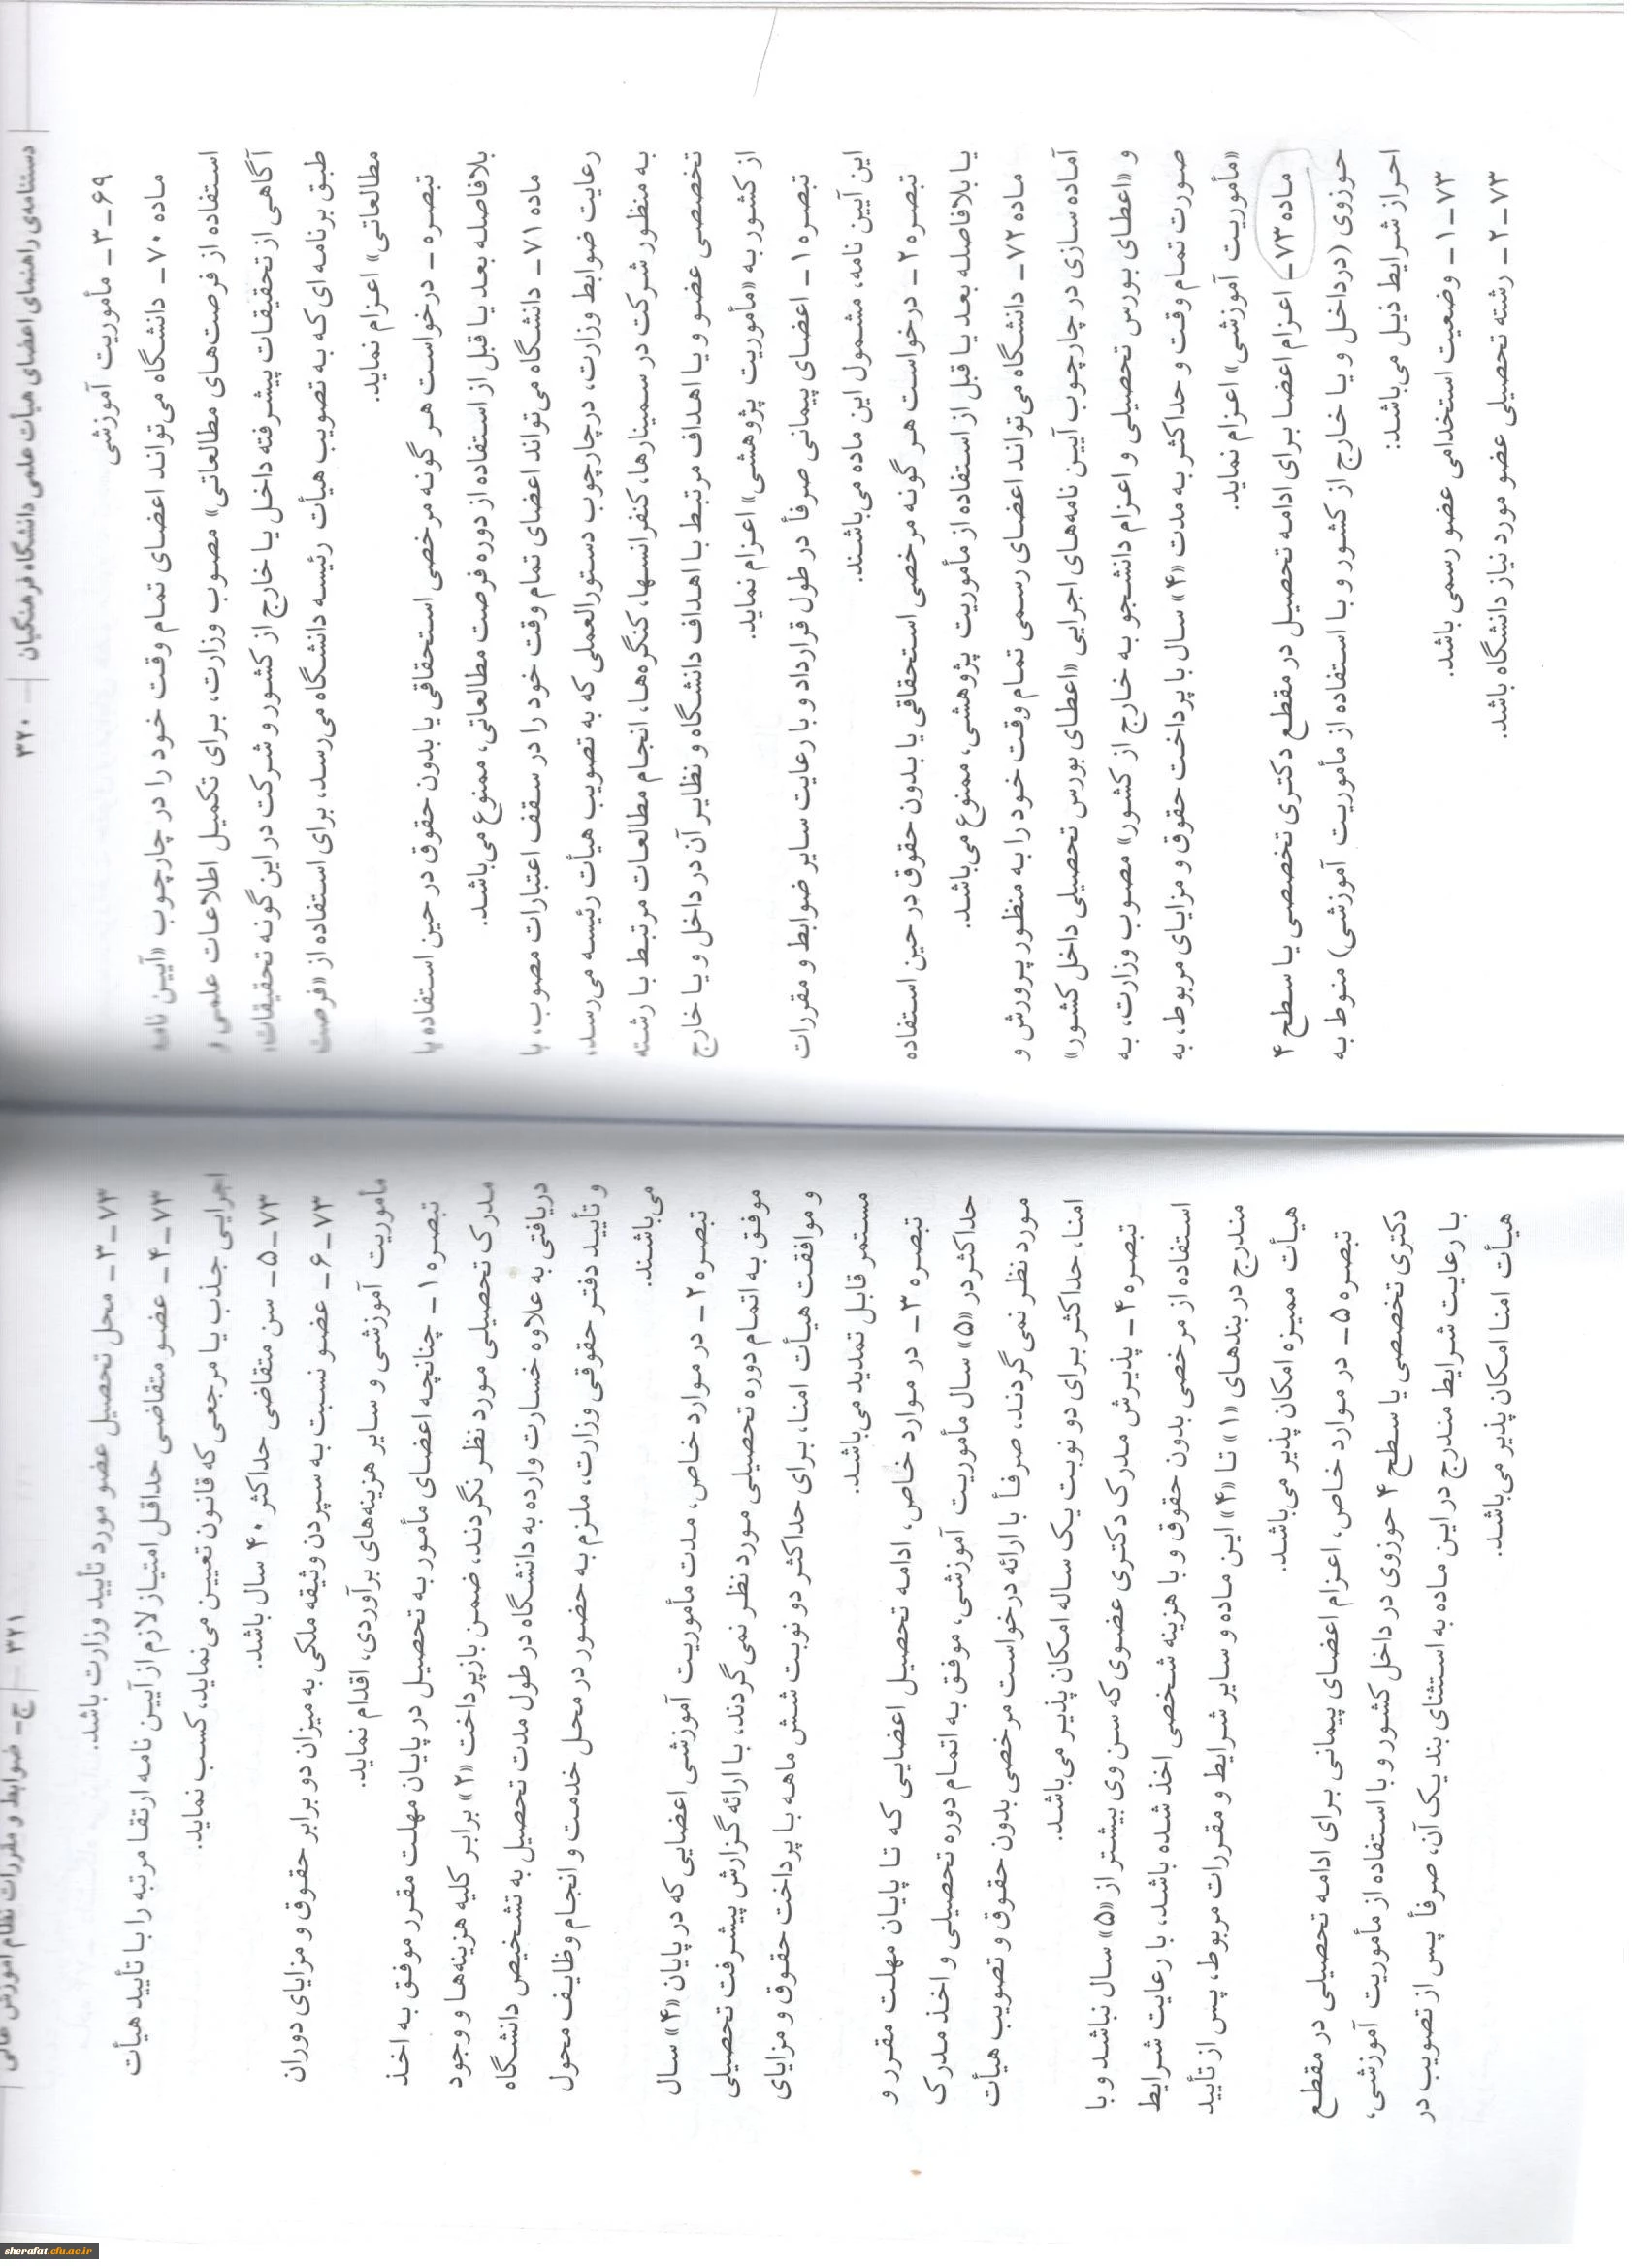 ۳۲۰ — دستنامه‌ی راهنمای اعضای هیأت علمی دانشگاه فرهنگیان
۶۹ـ۳ـ مأموریت آموزشی
ماده ۷۰ـ دانشگاه می‌تواند اعضای تمام وقت خود را در چارچوب «آیین نامه
استفاده از فرصت‌های مطالعاتی» مصوب وزارت، برای تکمیل اطلاعات علمی و
آگاهی از تحقیقات پیشرفته داخل یا خارج از کشور و شرکت در این گونه تحقیقات،
طبق برنامه ای که به تصویب هیأت رئیسه دانشگاه می‌رسد، برای استفاده از «فرصت
مطالعاتی» اعزام نماید.
تبصره ـ درخواست هر گونه مرخصی استحقاقی یا بدون حقوق در حین استفاده یا
بلافاصله بعد یا قبل از استفاده از دوره فرصت مطالعاتی، ممنوع می‌باشد.
ماده ۷۱ـ دانشگاه می‌تواند اعضای تمام وقت خود را در سقف اعتبارات مصوب، با
رعایت ضوابط وزارت، در چارچوب دستورالعملی که به تصویب هیأت رئیسه می‌رسد،
به منظور شرکت در سمینارها، کنفرانسها، کنگره‌ها، انجام مطالعات مرتبط با رشته
تخصصی عضو و یا اهداف مرتبط با اهداف دانشگاه و نظایر آن در داخل و یا خارج
از کشور به «مأموریت پژوهشی» اعزام نماید.
تبصره ۱ـ اعضای پیمانی صرفاً در طول قرارداد و با رعایت سایر ضوابط و مقررات
این آیین نامه، مشمول این ماده می‌باشند.
تبصره ۲ـ درخواست هر گونه مرخصی استحقاقی یا بدون حقوق در حین استفاده
یا بلافاصله بعد یا قبل از استفاده از مأموریت پژوهشی، ممنوع می‌باشد.
ماده ۷۲ـ دانشگاه می‌تواند اعضای رسمی تمام وقت خود را به منظور پرورش و
آماده سازی در چارچوب آیین نامه‌های اجرایی «اعطای بورس تحصیلی داخل کشور»
و «اعطای بورس تحصیلی و اعزام دانشجو به خارج از کشور» مصوب وزارت، به
صورت تمام وقت و حداکثر به مدت «۴» سال با پرداخت حقوق و مزایای مربوط، به
«مأموریت آموزشی» اعزام نماید.
ماده ۷۳ـ اعزام اعضا برای ادامه تحصیل در مقطع دکتری تخصصی یا سطح ۴
حوزوی (در داخل و یا خارج از کشور و با استفاده از مأموریت آموزشی) منوط به
احراز شرایط ذیل می‌باشد:
۷۳ـ۱ـ وضعیت استخدامی عضو رسمی باشد.
۷۳ـ۲ـ رشته تحصیلی عضو مورد نیاز دانشگاه باشد.
ج- ضوابط و مقررات نظام آموزش عالی — ۳۲۱
۷۳ـ۳ـ محل تحصیل عضو مورد تأیید وزارت باشد.
۷۳ـ۴ـ عضو متقاضی حداقل امتیاز لازم از آیین نامه ارتقا مرتبه را با تأیید هیأت
اجرایی جذب یا مرجعی که قانون تعیین می‌نماید، کسب نماید.
۷۳ـ۵ـ سن متقاضی حداکثر ۴۰ سال باشد.
۷۳ـ۶ـ عضو نسبت به سپردن وثیقه ملکی به میزان دو برابر حقوق و مزایای دوران
مأموریت آموزشی و سایر هزینه‌های برآوردی، اقدام نماید.
تبصره ۱ـ چنانچه اعضای مأمور به تحصیل در پایان مهلت مقرر موفق به اخذ
مدرک تحصیلی مورد نظر نگردند، ضمن بازپرداخت «۲» برابر کلیه هزینه‌ها و وجود
دریافتی به علاوه خسارت وارده به دانشگاه در طول مدت تحصیل به تشخیص دانشگاه
و تأیید دفتر حقوقی وزارت، ملزم به حضور در محل خدمت و انجام وظایف محول
می‌باشند.
تبصره ۲ـ در موارد خاص، مدت مأموریت آموزشی اعضایی که در پایان «۴» سال
موفق به اتمام دوره تحصیلی مورد نظر نمی گردند، با ارائه گزارش پیشرفت تحصیلی
و موافقت هیأت امنا، برای حداکثر دو نوبت شش ماهه با پرداخت حقوق و مزایای
مستمر قابل تمدید می‌باشد.
تبصره ۳ـ در موارد خاص، ادامه تحصیل اعضایی که تا پایان مهلت مقرر و
حداکثر در «۵» سال مأموریت آموزشی، موفق به اتمام دوره تحصیلی و اخذ مدرک
مورد نظر نمی گردند، صرفاً با ارائه درخواست مرخصی بدون حقوق و تصویب هیأت
امنا، حداکثر برای دو نوبت یک ساله امکان پذیر می‌باشد.
تبصره ۴ـ پذیرش مدرک دکتری عضوی که سن وی بیشتر از «۵» سال نباشد و با
استفاده از مرخصی بدون حقوق و با هزینه شخصی اخذ شده باشد، با رعایت شرایط
مندرج در بندهای «۱» تا «۴» این ماده و سایر شرایط و مقررات مربوط، پس از تأیید
هیأت ممیزه امکان پذیر می‌باشد.
تبصره ۵ـ در موارد خاص، اعزام اعضای پیمانی برای ادامه تحصیلی در مقطع
دکتری تخصصی یا سطح ۴ حوزوی در داخل کشور و با استفاده از مأموریت آموزشی،
با رعایت شرایط مندرج در این ماده به استثنای بند یک آن، صرفاً پس از تصویب در
هیأت امنا امکان پذیر می‌باشد.
sherafat.cfu.ac.ir